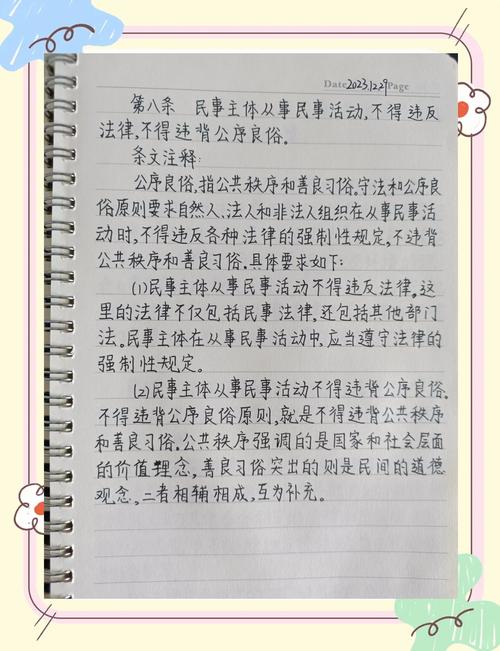 Date 2023.12.29 Page
第八条 民事主体从事民事活动,不得违反
法律,不得违背公序良俗。
条文注释:
公序良俗,指公共秩序和善良习俗。守法和公序良
俗原则要求自然人、法人和非法人组织在从事民事活
动时,不得违反各种法律的强制性规定,不违背
公共秩序和善良习俗。具体要求如下:
(1)民事主体从事民事活动不得违反法律。这
里的法律不仅包括民事法律,还包括其他部门
法。民事主体在从事民事活动中,应当遵守法律的
强制性规定。
(2)民事主体从事民事活动不得违背公序良俗。
不得违背公序良俗原则,就是不得违背公共秩序
和善良习俗。公共秩序强调的是国家和社会层面
的价值理念,善良习俗突出的则是民间的道德
观念,二者相辅相成,互为补充。